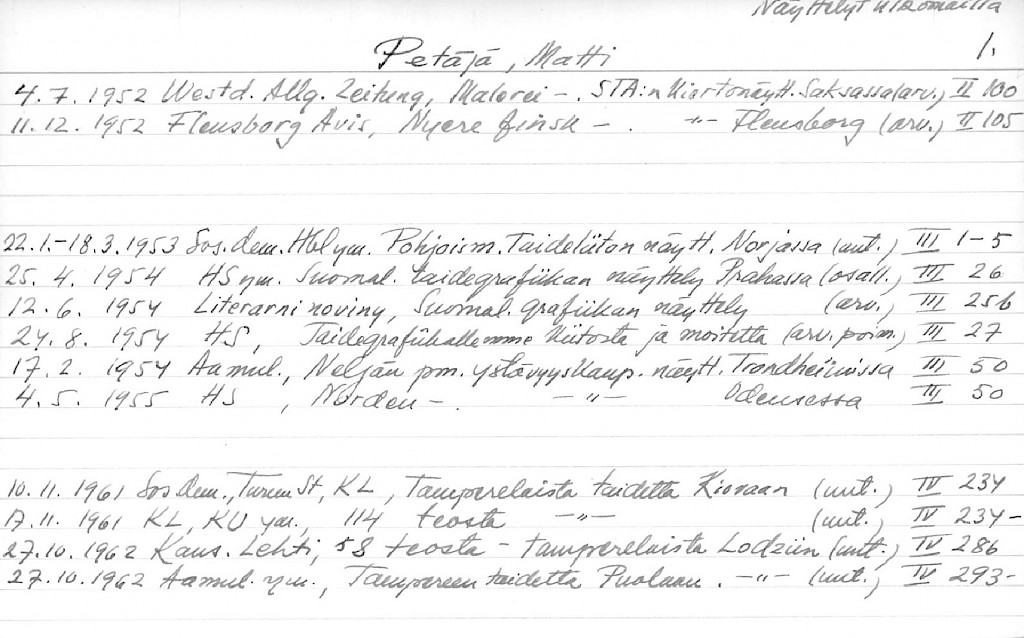 Näyttelyt ulkomailla
Petäjä, Matti 1.
4.7.1952 Westd. Allg. Zeitung, Malerei -. STA:n kiertonäytt. Saksassa (arv.) II 100
11.12.1952 Flensborg Avis, Nyere finsk -. -"- Flensborg (arv.) II 105
22.1.-18.3.1953 Sos.dem. Hbl ym. Pohjoism. Taideliiton näytt. Norjassa (uut.) III 1-5
25.4.1954 HS ym. Suomal. taidegrafiikan näyttely Prahassa (osall.) III 26
12.6.1954 Literarni noviny, Suomal. grafiikan näyttely (arv.) III 25b
24.8.1954 HS, Taidegrafiikallemme kiitosta ja moitetta (arv. poim.) III 27
17.2.1954 Aamul., Neljän pm. ystävyyskaup. näytt. Trondheimissa III 50
4.5.1955 HS, Norden -. -"- Odensessa III 50
10.11.1961 Sos Dem., Turun St, KL, Tamperelaista taidetta Kiovaan (uut.) IV 234
17.11.1961 KL, KU ym., 114 teosta -"- (uut.) IV 234-
27.10.1962 Kans. Lehti, 58 teosta - tamperelaista Lodziin (uut.) IV 286
27.10.1962 Aamul. ym., Tampereen taidetta Puolaan. -"- (uut.) IV 293-